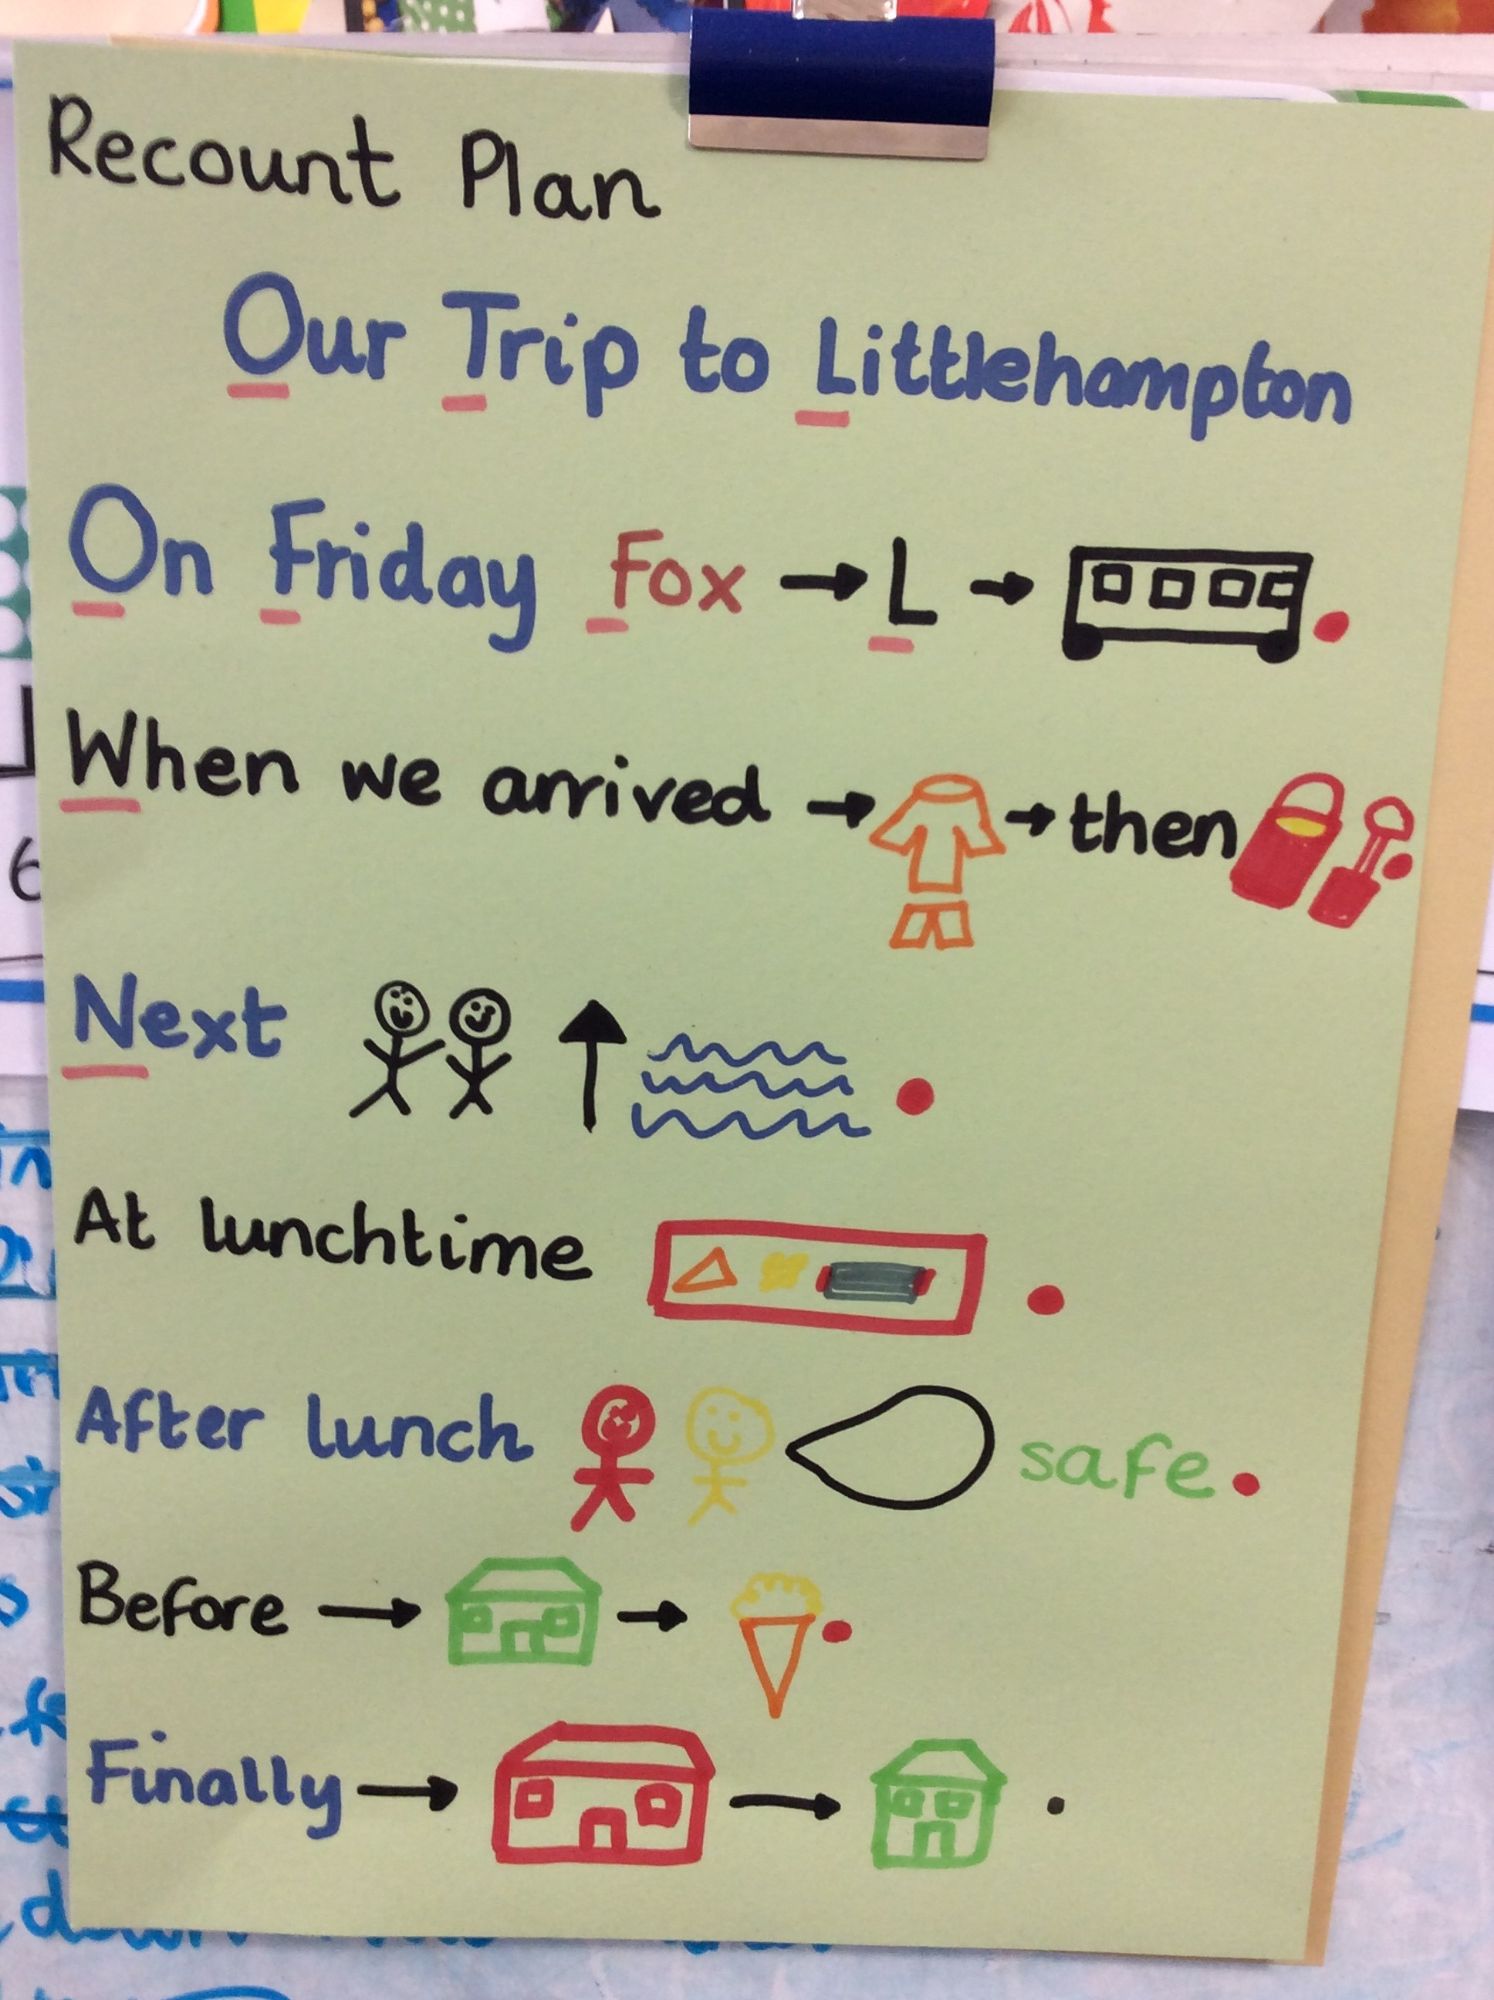 Recount Plan
Our Trip to Littlehampton
On Friday Fox → L →
When we arrived → → then
Next
At lunchtime
After lunch safe.
Before → →
Finally → → .
6